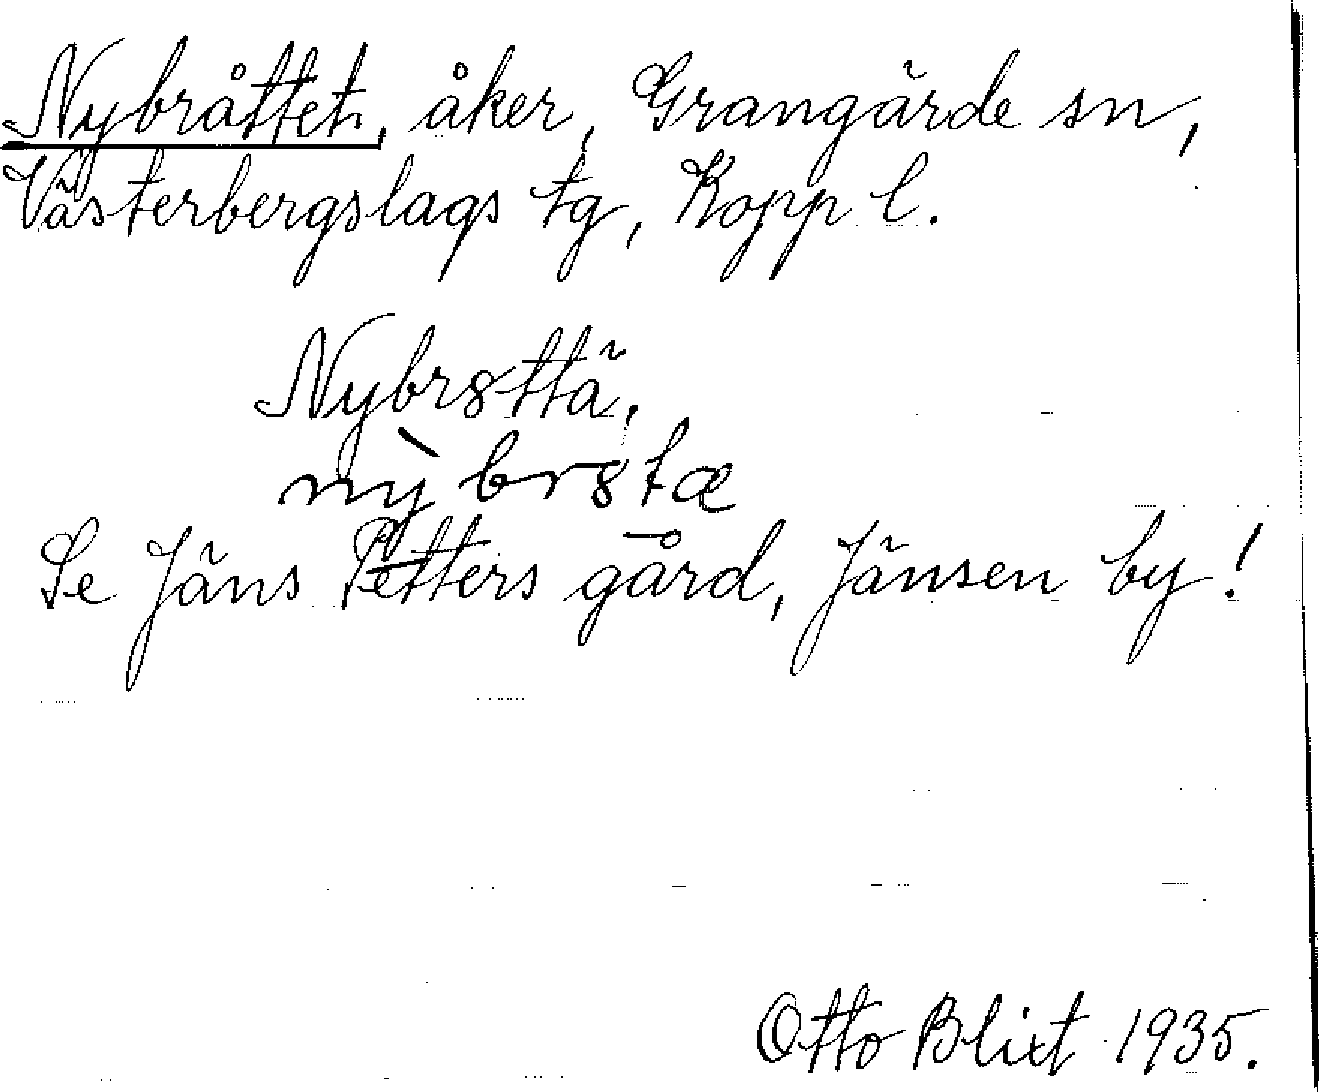 Nybråttet, åker, Grangärde sn,
Västerbergslags tg, Kopp l.
Nybrȣttä,
nỳbrȣtæ
Se Jäns Petters gård, Jänsen by!
Otto Blixt 1935.